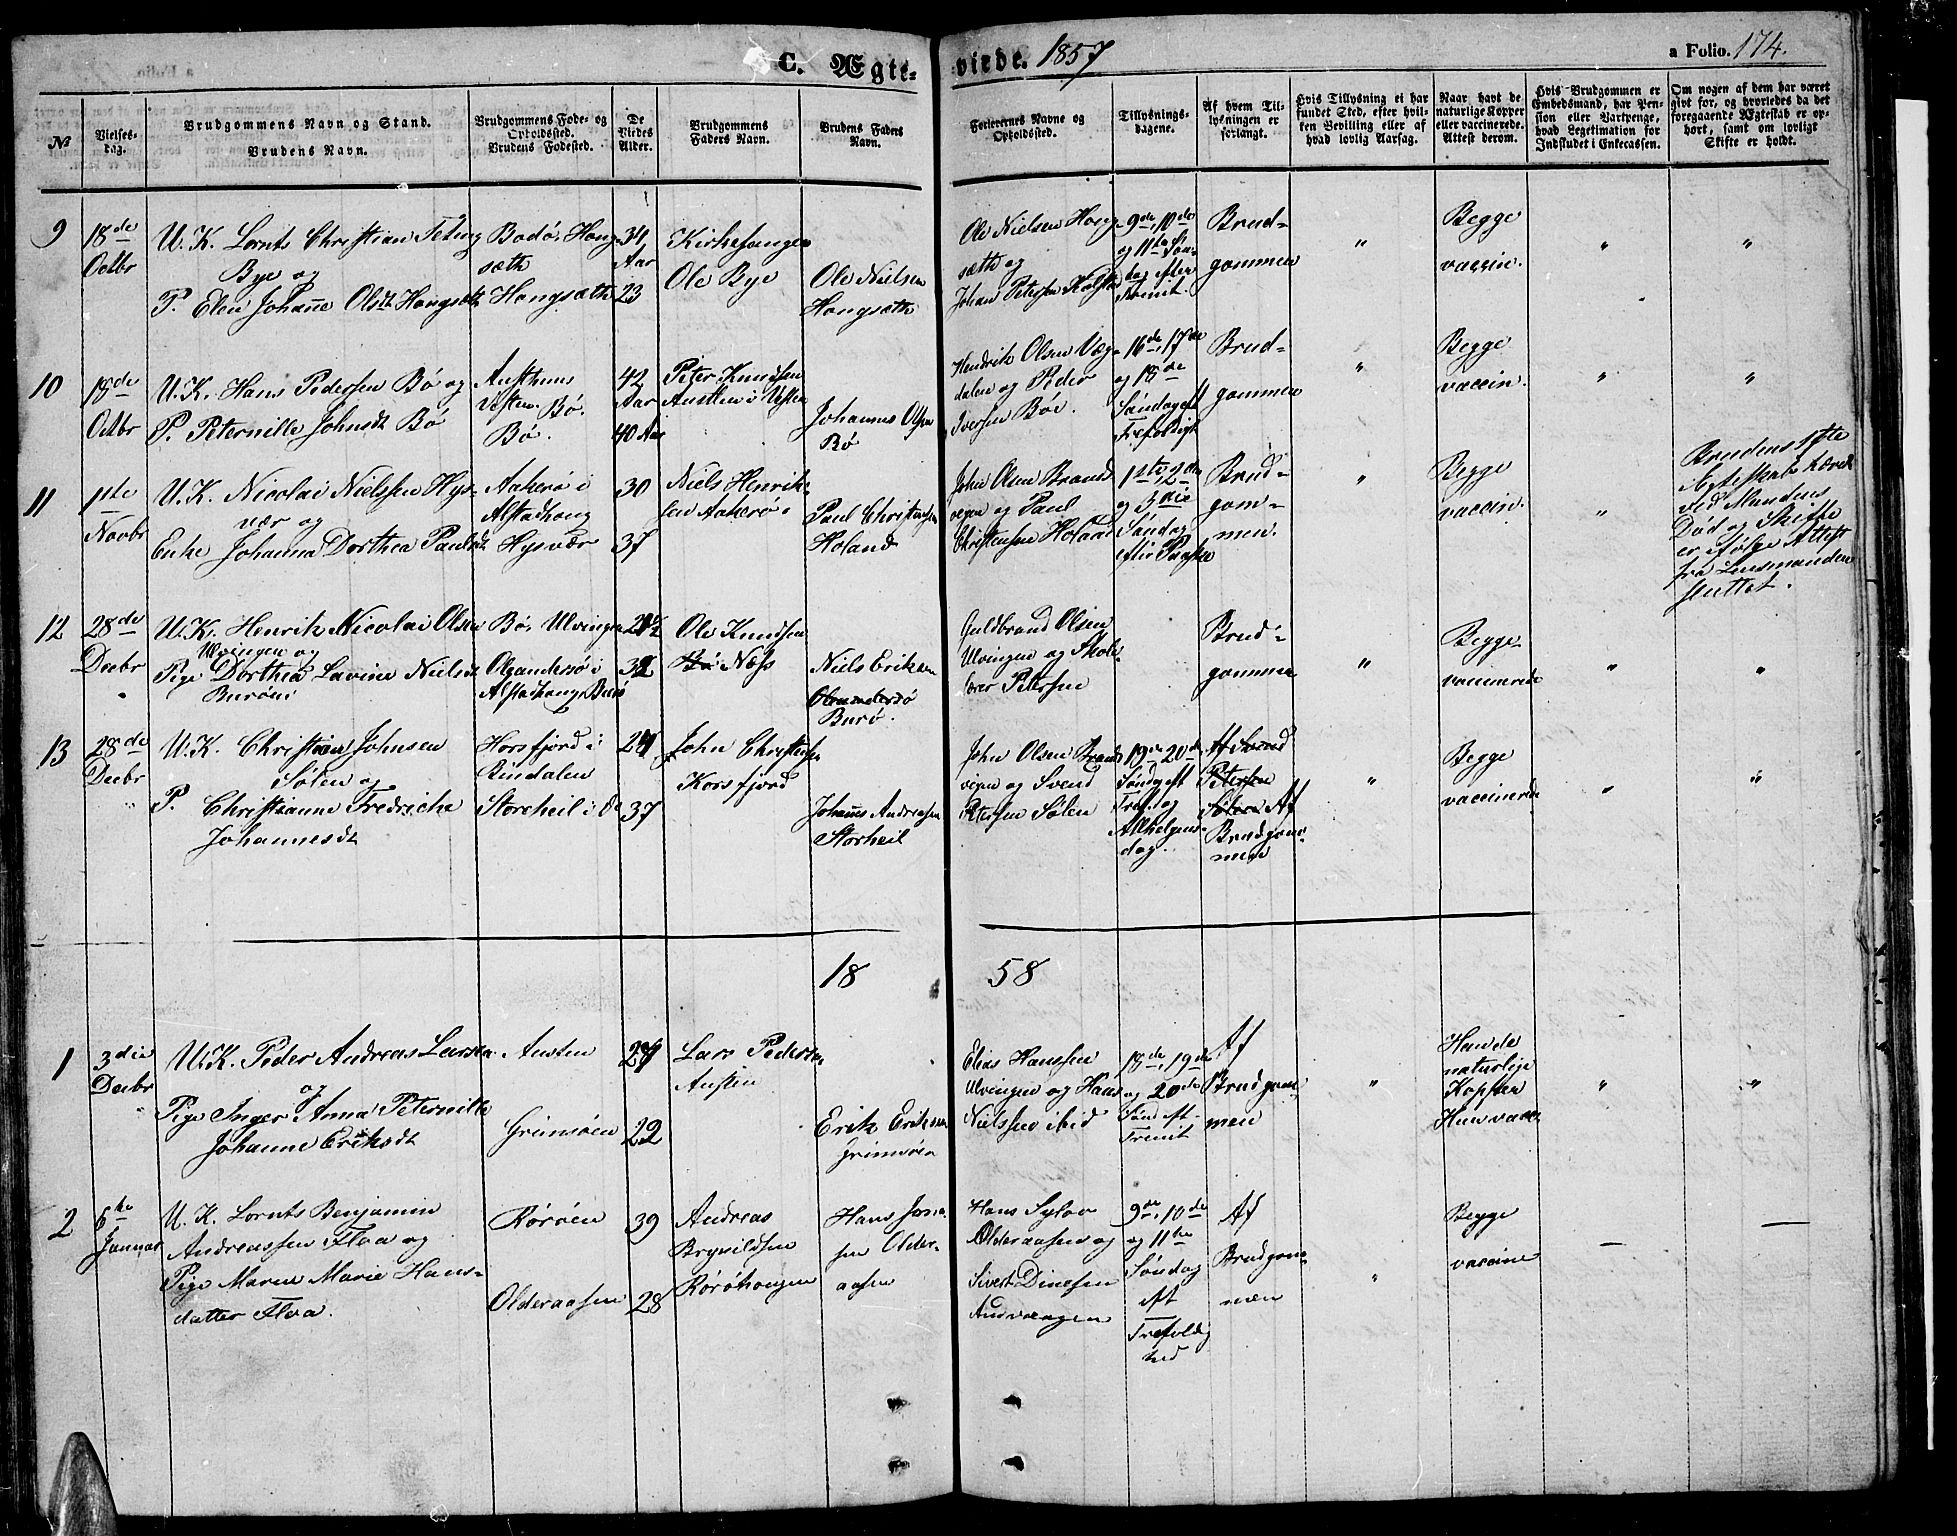 C. Ægte- viede. 1857
a Folio. 174.
№
Vielses-
dag.
Brudgommens Navn og Stand.
Brudens Navn.
Brudgommens Føde- og
Opholdssted.
Brudens Fødested.
De
Viedes
Alder.
Brudgommens
Faders Navn.
Brudens Faders
Navn.
Forlovernes Navne og
Opholdssted.
Tillysnings-
dagene.
Af hvem Til-
lysningen er
forlangt.
Hvis Tillysning ei har
fundet Sted, efter hvil-
ken Bevilling eller af
hvad lovlig Aarsag.
Naar havt de
naturlige Kopper
eller vaccinerede.
Attest derom.
Hvis Brudgommen er
Embedsmand, har Pen-
sion eller Vartpenge,
hvad Legetimation for
Indskudet i Enkecassen.
Om nogen af dem har været
givt for, og hvorledes da det
foregaaende Ægteskab er op-
hørt, samt om lovligt
Skifte er holdt.
9
18de
Octbr
U. K. Lornts Christian Teting
Bye og
P. Elen Johanne Olsdt. Hongsæth
Bodø, Hong-
sæth
Hongsæth
34
Aar
23
Kirkesanger
Ole Bye
Ole Nielsen
Hongsæth
Ole Nielsen Hong-
sæth og
Johan Petersen
9de, 10de
og 11te Søn-
dag efter
Trenit.
Brud-
gommen
"
Begge
vaccin.
"
"
10
18de
Octbr
U. K. Hans Pedersen Bø og
P. Peternille Johnsdt Bø
Austhuus
Vesten. Bø.
Bø.
42
Aar
40 Aar
Peter Knudsen
Austen i Vesten
Johannes Olsen
Bø
Hendrik Olsen Væg-
dalen og Peder
Iversen Bøe.
16de, 17de
og 18de
Søndag eft
Trefoldigh
Brud-
gommen
"
Begge
vaccin.
"
"
11
1ste
Novbr
U. K. Nicolai Nielssen Hys-
vær og
Enke Johanna Dorthea Paulsdt
Aakerø i
Alstadhoug
Hysvær
30
37
Niels Henrik-
sen Aakerø i
Paul Christensen
Holand
John Olsen Brand-
vegen og Paul
Christensen Holand
1ste, 2den
og 3die
Søndag
efter Paaske
Brud-
gom-
men.
"
Begge
vaccin.
"
Brudens 1ste
Ægteskab hævet
ved Mandens
Død og Skifte
er ifølge Attest
fra Lensmanden
sluttet.
12
28de
Decbr
"
U. K. Henrik Nicolai Olsen
Ulvingen og
Pige Dorthea Lavine Nielsdt
Burøen
Bø, Ulvingen
Olgandersø i
Alstadhoug Burø
32
Ole Knudsen
Bø Næss
Niels Eriksen
Burø.
Guldbrand Olsen
Ulvingen og Skole-
lærer Petersen
Brud-
gommen
"
Begge
vaccinerede
"
"
13
28de
Decbr
U. K. Christian Johnsen
Sølen og
P. Christianne Fredriche
Johannesdt
Horsfjord i
Bindalen
Storeheil i do
24
37
John Christens.
Korsfjord
Johannes Andreasen
Storheil
John Olsen Brand-
vegen og Svend
Petersen Sølen
19de, 20de
Søndag eft
Tref. og
Allhelgens-
dag.
Af Svend
Petersen
Sølen Af
Brudgom-
men
"
Begge
vaccinerede
"
"
18 58
1
3die
Decbr
U. K. Peder Andreas Larsen
og
Pige Inger Anna Peternille
Johanne Eriksdt
Austen
Grimsøen
24
22
Lars Pedersen
Austen
Erik Eriksen
Grimsøen
Elias Hanssen
Ulvingen og Hans
Nielssen ibid
18de, 19de
og 20de
Sønd. eft.
Trenit
Af
Brudgom-
men
"
Han de
naturlige
Kopper
Hun vacc.
"
"
2
6te
Januar
U. K. Lornts Benjamin
Andreassen Floa og
Pige Maren Marie Hans-
datter Floa.
Rørøen
Olderaasen
39
28
Andreas
Brynildsen
Rørøhougen
Hans Jens-
sen Older-
aasen
Hans Sylov
Olderaasen og
Sivert Dinesen
9de, 10de
og 11te
Søndag
eft
Trefoldig
hed
Af
Brudgom-
men
"
Begge
vaccine
—
—